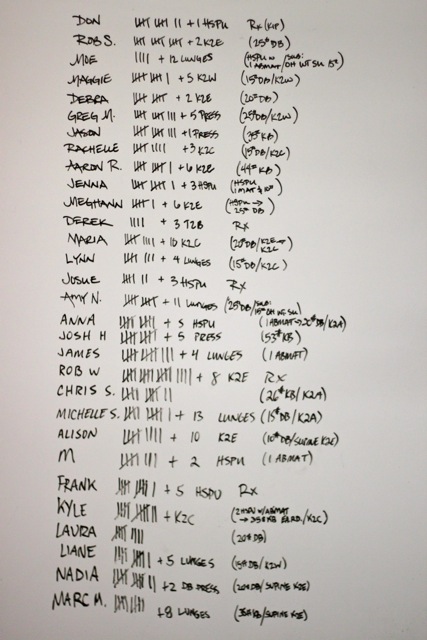 DON 卌 卌 || + 1 HSPU RX (KIP)
ROB S. 卌 卌 卌 + 2 K2E (25# DB)
MOE |||| + 12 LUNGES (HSPU W 1 ABMAT / SUB: OH WT SU 15#)
MAGGIE 卌 卌 | + 5 K2W (15# DB/K2W)
DEBRA 卌 卌 + 2 K2E (20# DB)
GREG M. 卌 卌 ||| + 5 PRESS (25# DB/K2W)
JASON 卌 卌 ||| + 1 PRESS (35# KB)
RACHELLE 卌 |||| + 3 K2C (15# DB/K2C)
AARON R. 卌 卌 | + 6 K2E (44# KB)
JENNA 卌 卌 | + 3 HSPU (HSPU 1 MAT & 10#)
MEGHANN 卌 | + 6 K2E (HSPU → 25# DB)
DEREK |||| + 3 T2B RX
MARIA 卌 |||| + 10 K2C (20# DB/K2E → K2C)
LYNN 卌 ||| + 4 LUNGES (15# DB/K2C)
JOSUE 卌 || + 3 HSPU RX
AMY N. 卌 卌 + 11 LUNGES (25# DB/SUB: 15# OH WT SU)
ANNA 卌 卌 | + 5 HSPU (1 ABMAT → 20# DB/K2A)
JOSH H 卌 卌 | + 5 PRESS (53# KB)
JAMES 卌 卌 ||| + 4 LUNGES (1 ABMAT)
ROB W 卌 卌 卌 |||| + 8 K2E RX
CHRIS S. 卌 卌 || (26# KB/K2A)
MICHELLE S. 卌 卌 | + 13 LUNGES (15# DB/K2A)
ALISON 卌 |||| + 10 K2E (10# DB/SUPINE K2E)
M 卌 ||| + 2 HSPU (1 ABMAT)
FRANK 卌 卌 | + 5 HSPU RX
KYLE 卌 卌 || + K2C (2 HSPU W/ABMAT → 35# KB /K2C)
LAURA 卌 |||| (20# DB)
LIANE 卌 卌 | + 5 LUNGES (15# DB/K2W)
NADIA 卌 卌 | + 2 DB PRESS (20# DB/SUPINE K2E)
MARC M. 卌 卌 + 8 LUNGES (35# KB/SUPINE K2E)